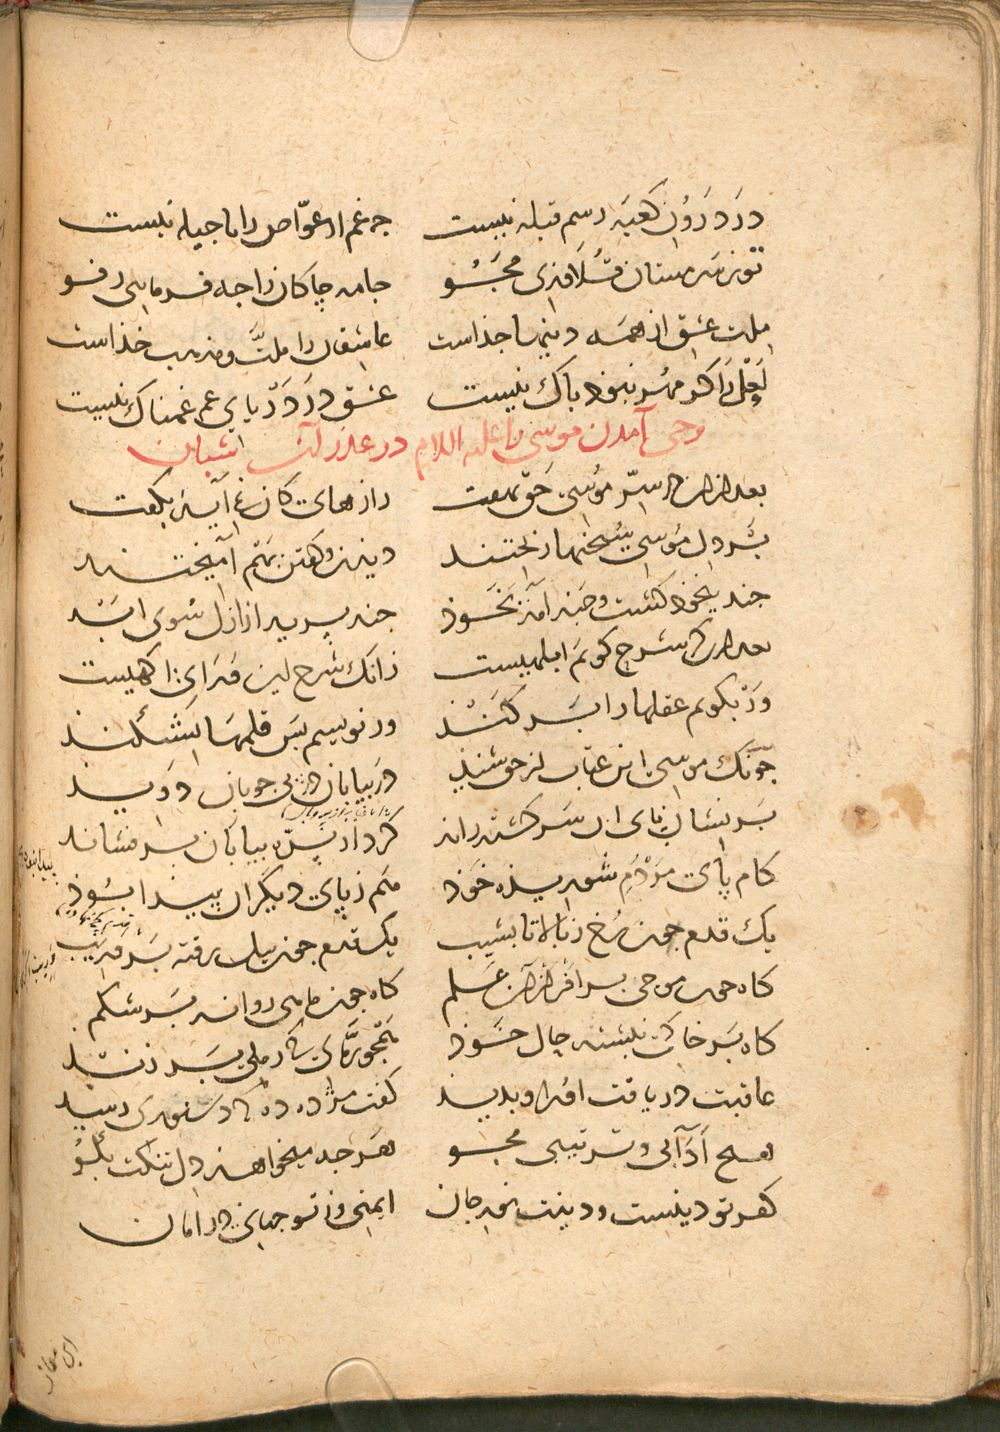 در درون کعبه رسم قبله نیست چه غم ار غواص را پاچیله نیست
تو ز سرمستان قلاوزی مجو جامه چاکان را چه فرمایی رفو
ملت عشق از همه دینها جذاست عاشقان را ملت و مذهب خذاست
لعل را کر مهر نبود باک نیست عشق در دریای غم غمناک نیست
وحی آمدن موسی را علیه السلام در عذر آن شبان
بعد ازان در سر موسی حق نهفت رازهای کان نمی آید بکفت
بر دل موسی سخنها ریختند دیدن و کفتن بهم آمیختند
چند بیخود کشت و چند آمد بخوذ چند پرید از ازل سوی ابد
بعد ازین کر شرح کویم ابلهیست زانک شرح این ورای آکهیست
ور بکویم عقلها را بر کند ور نویسم بس قلمها بشکند
چونک موسی این عتاب از حق شنید در بیابان در پی چوپان دوید
بر نشان پای آن سرکشته راند کرد از پره بیابان بر فشاند
کام پای مردم شوریذه خوذ هم ز پای دیکران پیدا بوذ
یک قدم چون رخ ز بالا تا بشیب یک قدم چون پیل رفته بر وریب
کاه چون موجی بر افرازان علم کاه چون ماهی روانه بر شکم
کاه بر خاکی نبشته حال خوذ همچو رمالی که رملی بر زند
عاقبت دریافت او را و بدید کفت مژده ده که دستوری رسید
هیچ آدابی و ترتیبی مجو هرچه میخواهد دل تنکت بکو
کفر تو دینست و دینت نور جان ایمنی وز تو جهانی در امان